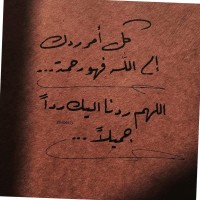 كل أمر ردك
إلى الله فهو رحمة...
اللهم ردنا إليك رداً
جميلاً...